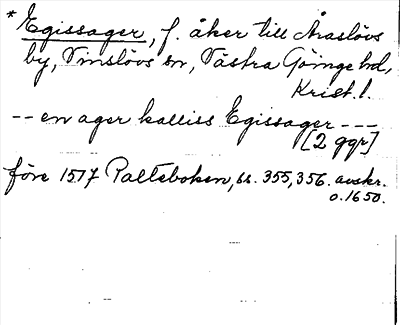 * Egissager, f. åker till Araslövs
by, Vinslövs sn, Västra Göinge hd,
Krist. l.
-- en ager kalliss Egissager ---
[2 ggr]
före 1517 Palteboken, ss. 355, 356. avskr.
o. 1650.